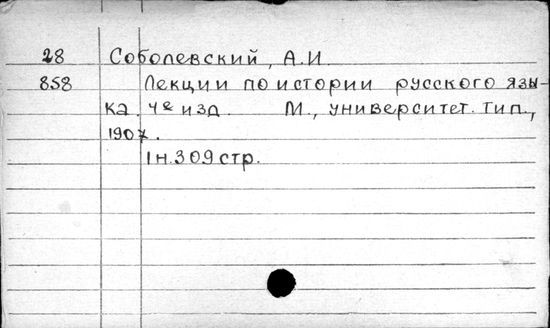 28 Соболевский, А.И.
858 Лекции по истории русского язы-
ка. 4е изд. М., университет. тип.,
1907.
1н.309 стр.